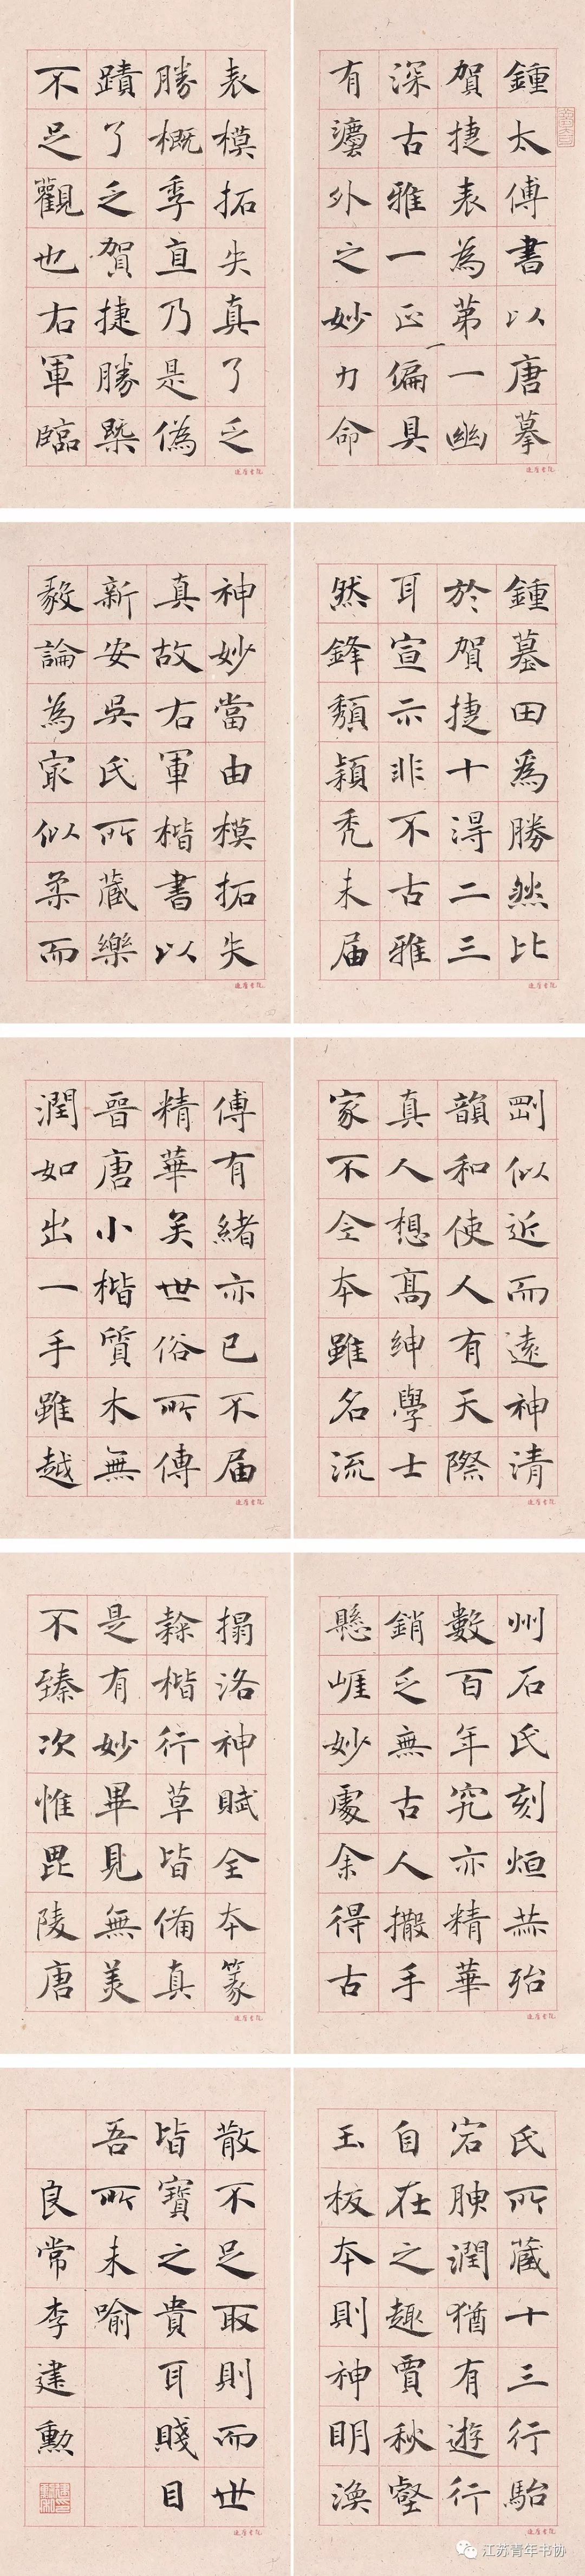 鍾太傅書以唐摹
賀捷表為第一幽
深古雅一正偏具
有灋外之妙力命
表模拓失真了乏
勝概季直乃是偽
蹟了乏賀捷勝槩
不足觀也右軍臨
鍾墓田為勝然比
於賀捷十得二三
耳宣示非不古雅
然鋒頹穎秃未届
神妙當由模拓失
真故右軍楷書以
新安吳氏所藏樂
毅論為㝡似柔而
剛似近而遠神清
韻和使人有天際
真人想高紳學士
家不全本雖名流
傅有緒亦已不届
精華矣世俗所傳
晉唐小楷質木無
潤如出一手雖越
州石氏刻烜赫殆
數百年究亦精華
銷乏無古人撒手
懸崕妙處余得古
搨洛神賦全本篆
隸楷行草皆備真
是有妙畢見無美
不臻次惟毘陵唐
氏所藏十三行駘
宕腴潤猶有遊行
自在之趣賈秋壑
玉板本則神明渙
散不足取則而世
皆寶之貴耳賤目
吾所未喻
良常李建勳
江苏青年书协